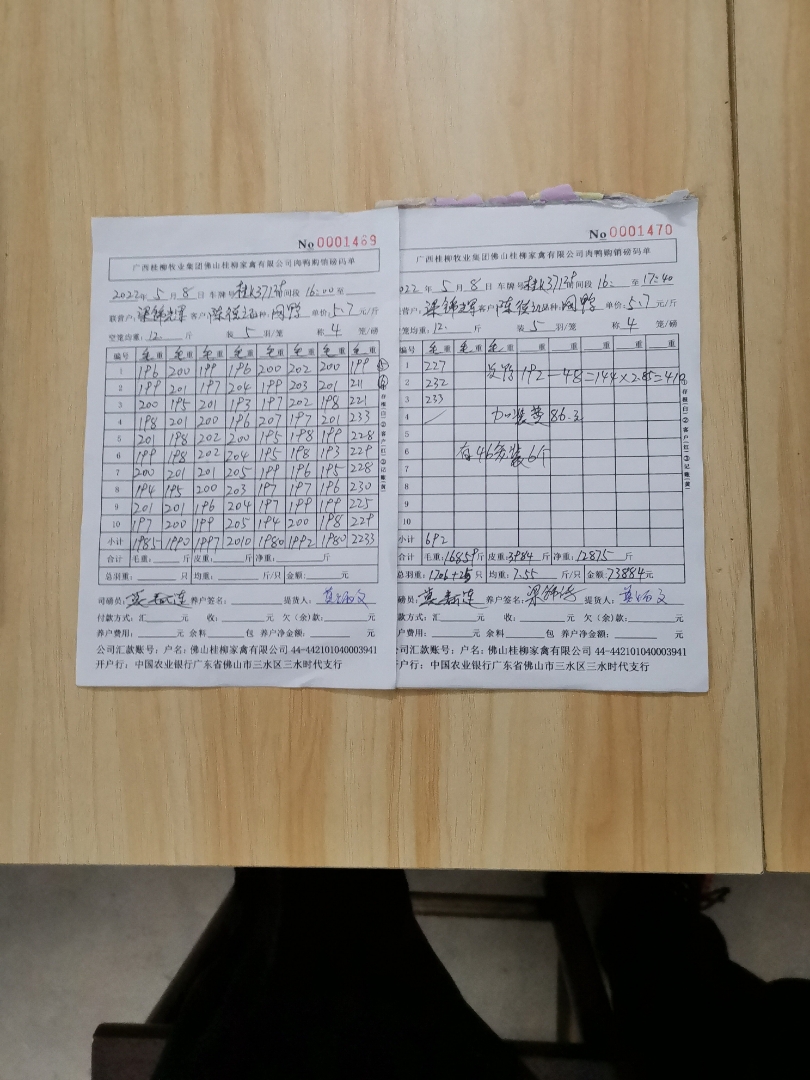 No 0001469
广西桂柳牧业集团佛山桂柳家禽有限公司肉鸭购销磅码单
2022年 5月 8日 车牌号 时间段 16:00至
联营户: 客户: 品种: 单价: 5.7 元/斤
空笼均重: 12. 斤 装 5 羽/笼 称 4 笼/磅
编号 毛重 毛重 毛重 毛重 毛重 毛重 毛重 毛重
1 196 200 199 196 200 202 200 199
2 199 201 197 204 199 203 201 211
3 200 195 201 193 197 202 198 221
4 198 201 200 196 207 197 201 233
5 201 198 202 200 195 198 199 228
6 199 198 202 204 195 198 193 229
7 200 201 201 205 199 196 195 228
8 194 195 200 203 197 197 196 230
9 201 201 196 204 197 199 199 225
10 197 200 199 205 194 200 198 229
小计 1985 1990 1997 2010 1980 1992 1980 2233
合计 毛重: 斤 皮重: 斤 净重: 斤
总羽重: 只 均重: 斤/只 金额: 元
司磅员: 养户签名: 提货人:
付款方式: 汇 元 收: 元 欠(余)款: 元
养户费用: 元 余料 包 养户净金额: 元
公司汇款账号: 户名: 佛山桂柳家禽有限公司 44-442101040003941
开户行: 中国农业银行广东省佛山市三水区三水时代支行
No 0001470
广西桂柳牧业集团佛山桂柳家禽有限公司肉鸭购销磅码单
022年 5月 8日 车牌号 时间段 16: 至 17:40
联营户: 客户: 品种: 单价: 5.7 元/斤
空笼均重: 12. 斤 装 5 羽/笼 称 4 笼/磅
编号 毛重 毛重 毛重 重 重 重 重 重
1 227 192-48=144×2.85=410
2 232
3 233
4 加装费 86.3
5
6 有46多装6个
7
8
9
10
小计 692
合计 毛重: 16859斤 皮重: 3984斤 净重: 12875斤
总羽重: 1706+25只 均重: 7.55 斤/只 金额: 73884元
磅员: 养户签名: 提货人:
款方式: 汇 元 收: 元 欠(余)款: 元
户费用: 元 余料 包 养户净金额: 元
司汇款账号: 户名: 佛山桂柳家禽有限公司 44-442101040003941
户行: 中国农业银行广东省佛山市三水区三水时代支行